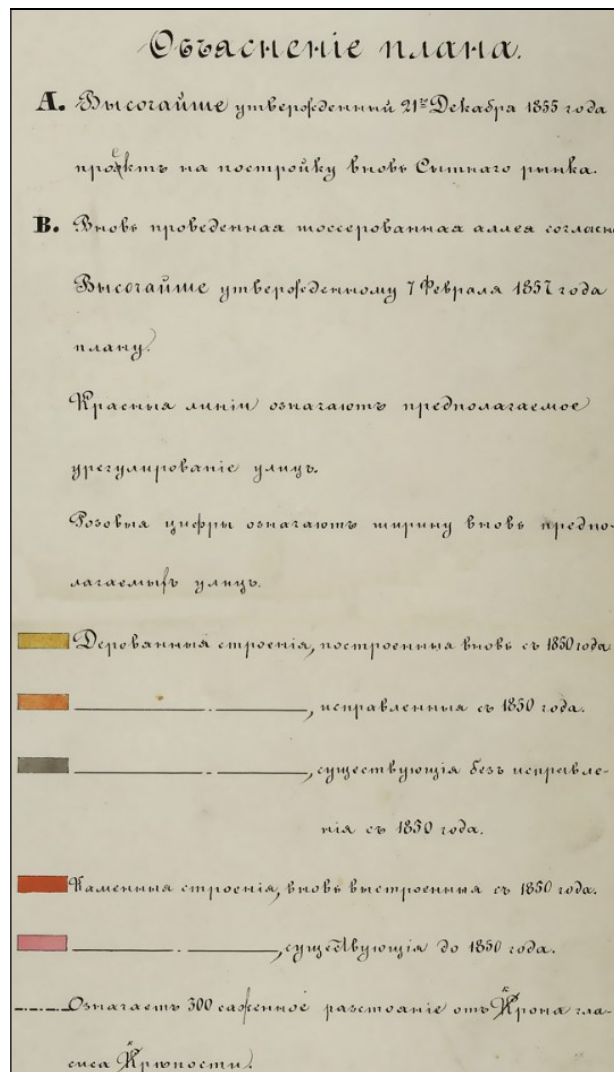 Объясненіе плана.
А. Высочайше утвержденный 21го Декабря 1855 года
проэктъ на постройку вновь Сытнаго рынка.
В. Вновь проведенная шоссерованная аллея согласно
Высочайше утвержденному 7 Февраля 1857 года
плану.
Красныя линіи означаютъ предполагаемое
урегулированіе улицъ.
Розовыя цифры означаютъ ширину вновь предпо-
лагаемыхъ улицъ.
Дерованныя строенія, построенныя вновь съ 1850 года
, исправленныя съ 1850 года.
, существующія безъ исправле-
нія съ 1850 года.
Каменныя строенія, вновь выстроенныя съ 1850 года.
, существующія до 1850 года.
Означаетъ 300 саженное разстояніе отъ Крона гла-
сиса Крѣпости.